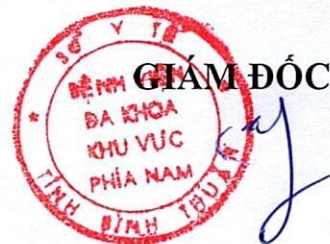 GIÁM ĐỐC
SỞ Y TẾ
BỆNH VIỆN
ĐA KHOA
KHU VỰC
PHÍA NAM
TỈNH BÌNH THUẬN